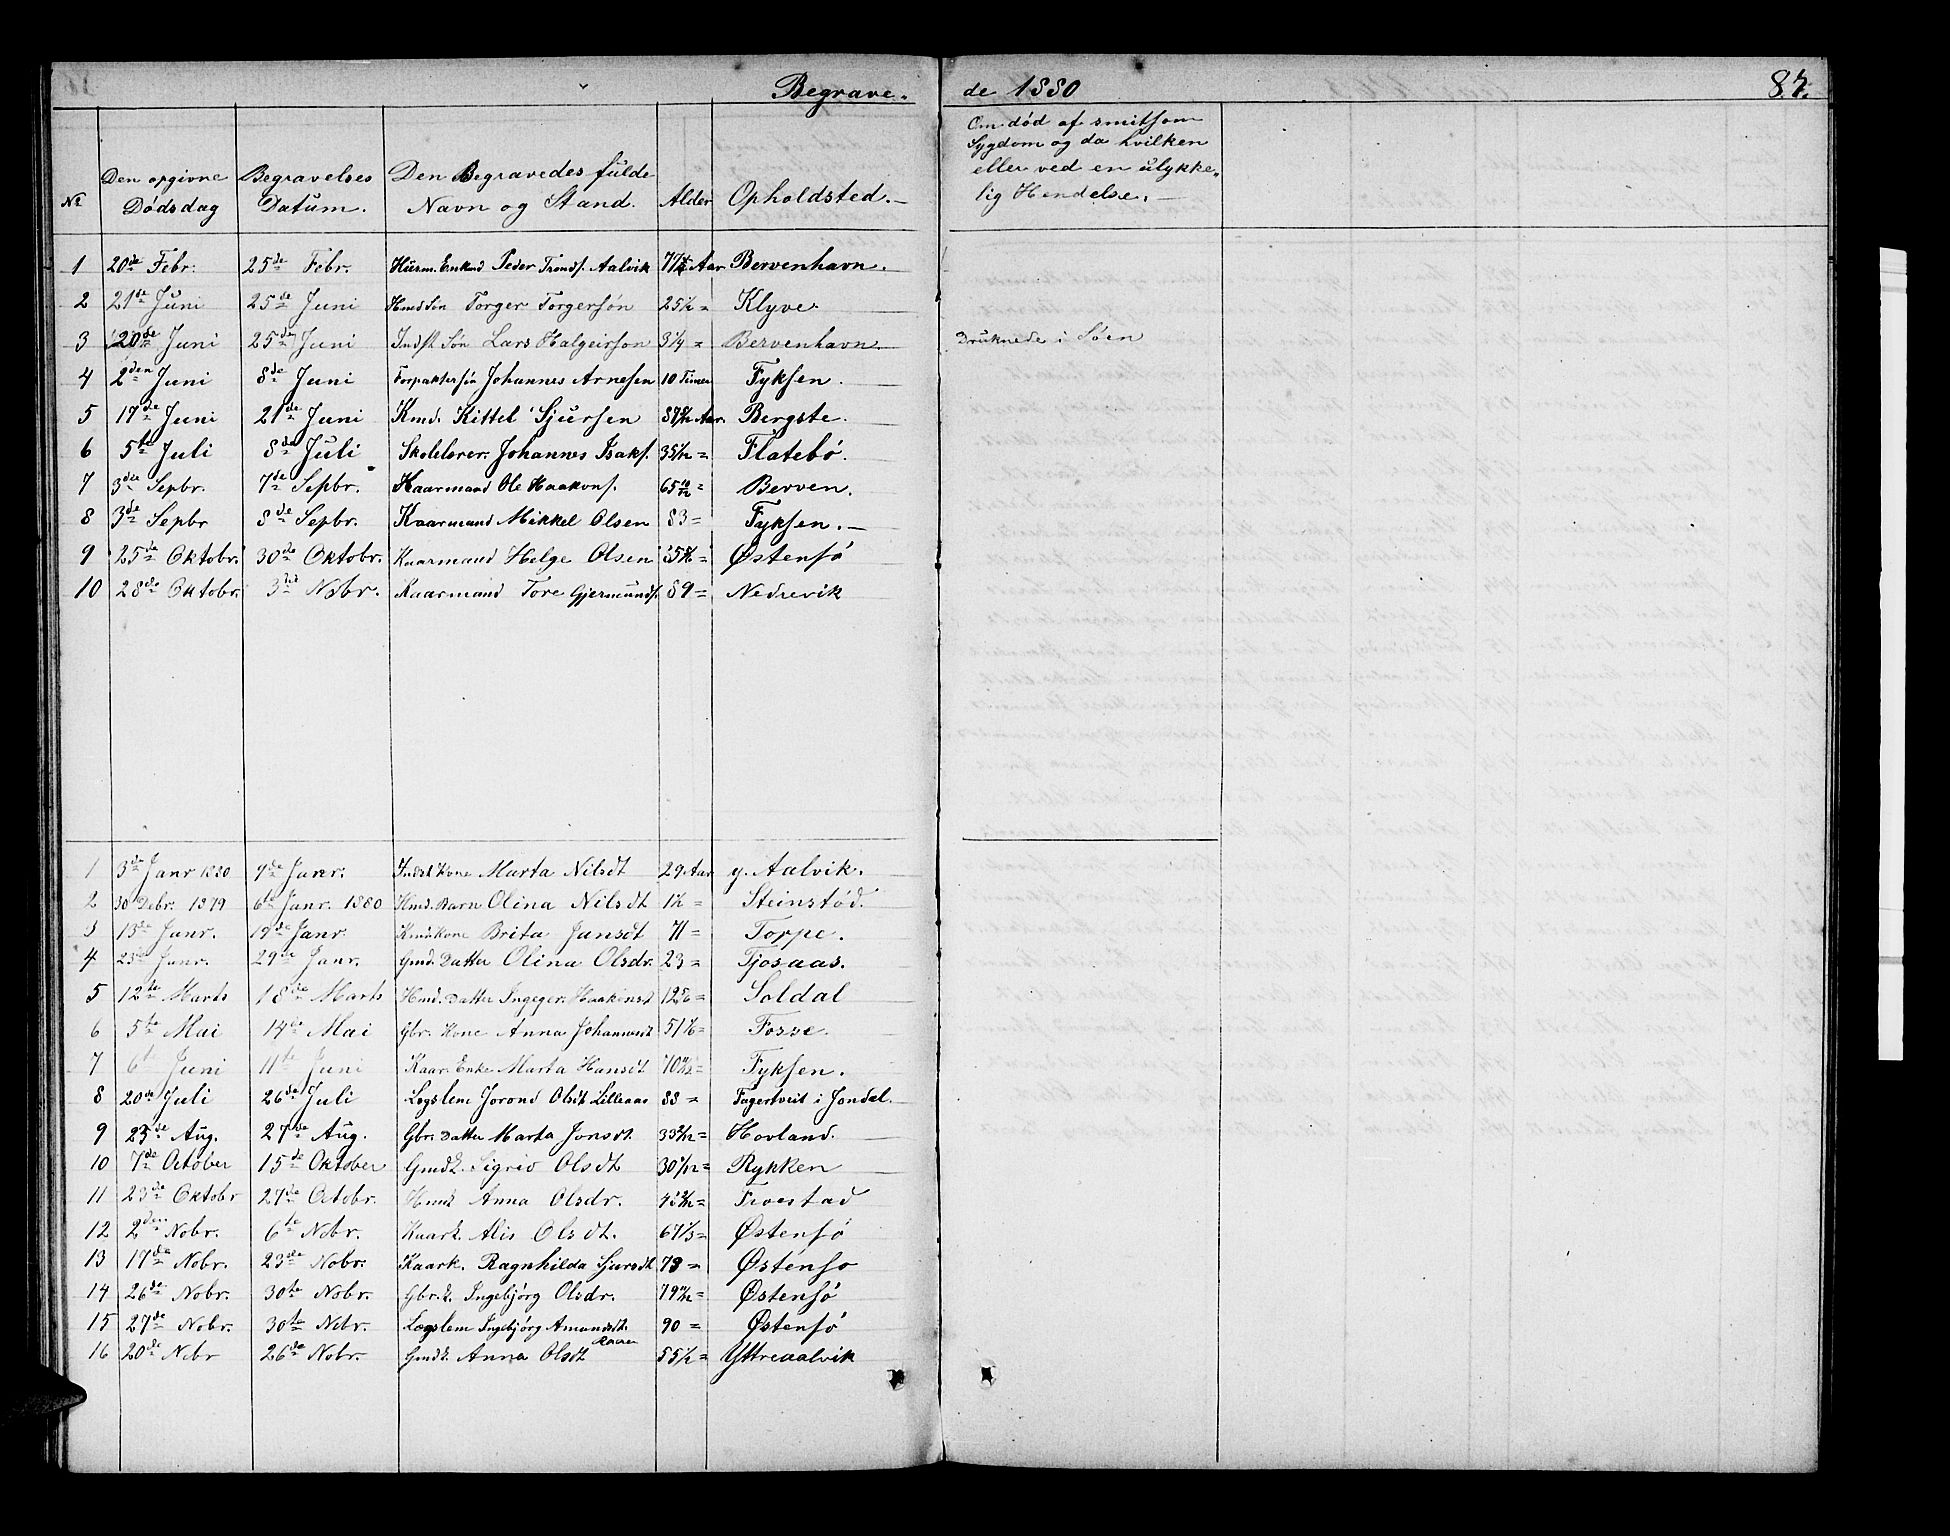 Begrave- de 1880 87.
№ Den opgivne Dødsdag Begravelses Datum. Den Begravedes fulde Navn og Stand. Alder Opholdsted. Om død af smitsom Sygdom og da hvilken eller ved en ulykkelig Hendelse.
1 20de Febr. 25de Febr. Huusm. Enkmd Peder Tronds. Aalvik Aar Bervenhavn.
2 21de Juni 25de Juni Hmd Søn Torger Torgersøn 25½ = Klyve
3 20de Juni 25de Juni Indst Søn Lars Halgeirson 3¼ = Bervenhavn Druknede i Søen
4 2den Juni 8de Juni Forpaktersøn Johannes Arnesen 10 Timer Fyksen.
5 17de Juni 21de Juni Kmd. Kittel Sjursen Aar. Bergste.
6 5te Juli 8de Juli Skolelærer. Johannes Isaks. = Flatebø.
7 3die Sepbr. 7de Sepbr. Kaarmand Ole Haakons. 65 10/12 = Berven.
8 3de Sepbr 8de Sepbr. Kaarmand Mikkel Olsen 83 = Fyksen.
9 25de Oktobr. 30de Oktobr. Kaarmand Helge Olsen = Østensø
10 28de Oktobr. 3die Nobr. Kaarmand Tore Gjermunds. 89 = Nedrevik
1 3de Janr 1880 9de Janr. Indst Kone Marta Nilsdt 29 Aar y. Aalvik.
2 30 Debr. 1879 6te Janr. 1880 Hmd. Barn Olina Nilsdt 1½ = Steinstød.
3 13de Janr. 19de Janr. Kmd Kone Brita Jansdt 71 = Torpe.
4 23de Janr. 29de Janr. Gmd. Datter Olina Olsdr. 23 = Tjosaas.
5 12te Marts 18de Marts Hmd. Datter Ingeger. Haakensdt = Soldal
6 5te Mai 14de Mai Gbr. Kone Anna Johannesdt = Fosse.
7 6te Juni 11te Juni Kaar. Enke Marta Hansdt = Fyksen.
8 20de Juli 26de Juli Lægslem Jorond Olsdt Lilleaas 88 = Fagertveit i Jondal.
9 23de Aug. 27de Aug. Gbr. Datter Marta Jonsdt. = Hovland.
10 7de October 15de Oktober Gmdk. Sigrid Olsdt = Rykken
11 23de Oktobr 27de Octobr. Hmdk Anna Olsdr. = Tvestad
12 2den Nobr. 6te Nobr. Kaark. Alis Olsdt. = Østensø
13 17de Nobr. 23de Nobr. Kaark. Ragnhilda Sjursdt 73 = Østensø
14 26de Nobr. 30te Nobr. Gbr.k. Ingebjørg Olsdr. = Østensø
15 27de Nobr. 30te Nobr. Lægslem Ingebjørg Amundsdt. 90 = Østensø
16 20de Nobr 26de Nobr. Gmdk. Anna Olsdt 55½ = Yttreaalvik